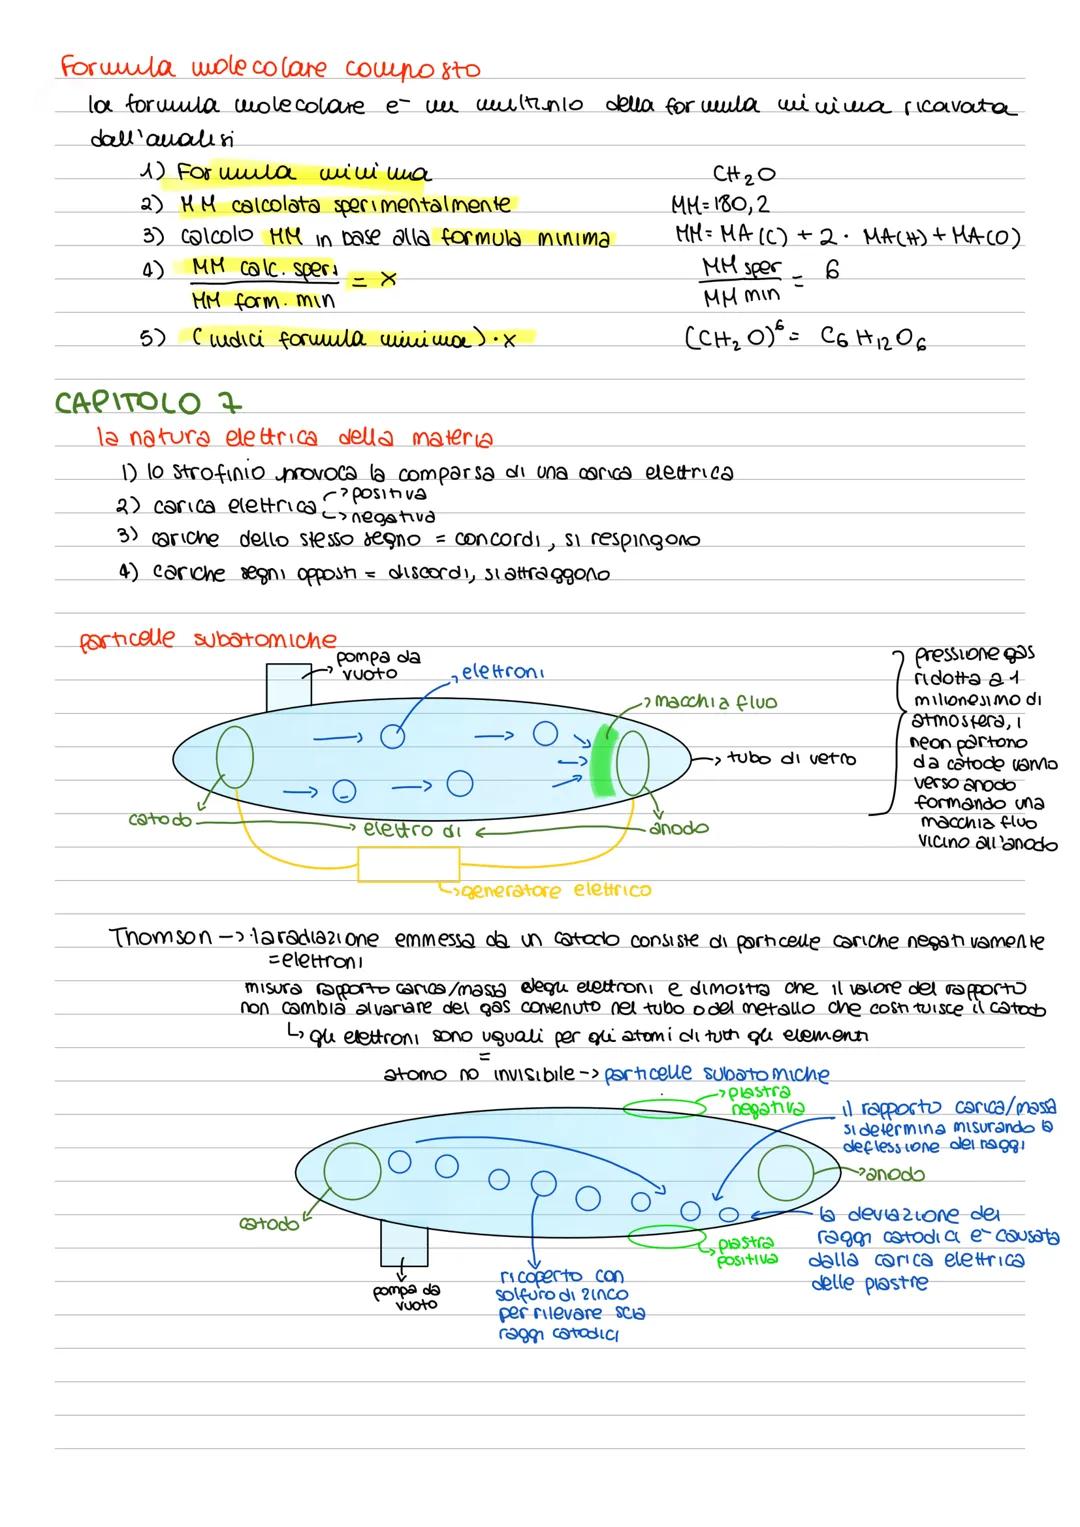 Formula molecolare composto
la formula molecolare e- un multiplo della formula minima ricavata
dall'analisi
1) Formula minima CH₂O
2) MM calcolata sperimentalmente MM=180,2
3) calcolo MM in base alla formula minima MM= MA(C) + 2 · MA(H) + MA(O)
4) MM calc. sper. / MM form. min = x MM sper / MM min = 6
5) (indici formula minima)·x (CH₂O)⁶ = C₆H₁₂O₆
CAPITOLO 7
la natura elettrica della materia
1) lo strofinio provoca la comparsa di una carica elettrica
2) carica elettrica -> positiva
-> negativa
3) cariche dello stesso segno = concordi, si respingono
4) cariche segni opposti = discordi, si attraggono
particelle subatomiche
pompa da
vuoto
elettroni
macchia fluo
tubo di vetro
catodo
elettro di
anodo
generatore elettrico
pressione gas
ridotta a 1
milionesimo di
atmosfera, i
neon partono
da catode vanno
verso anodo
formando una
macchia fluo
vicino all'anodo
Thomson -> la radiazione emmessa da un catodo consiste di particelle cariche negativamente
= elettroni
misura rapporto carica/massa degli elettroni e dimostra che il valore del rapporto
non cambia al variare del gas contenuto nel tubo o del metallo che costituisce il catodo
↳ gli elettroni sono uguali per gli atomi di tutti gli elementi
=
atomo no invisibile -> particelle subatomiche
piastra
negativa
il rapporto carica/massa
si determina misurando la
deflessione dei raggi
anodo
catodo
la deviazione dei
raggi catodici e- causata
dalla carica elettrica
delle piastre
piastra
positiva
pompa da
vuoto
ricoperto con
solfuro di zinco
per rilevare scia
raggi catodici